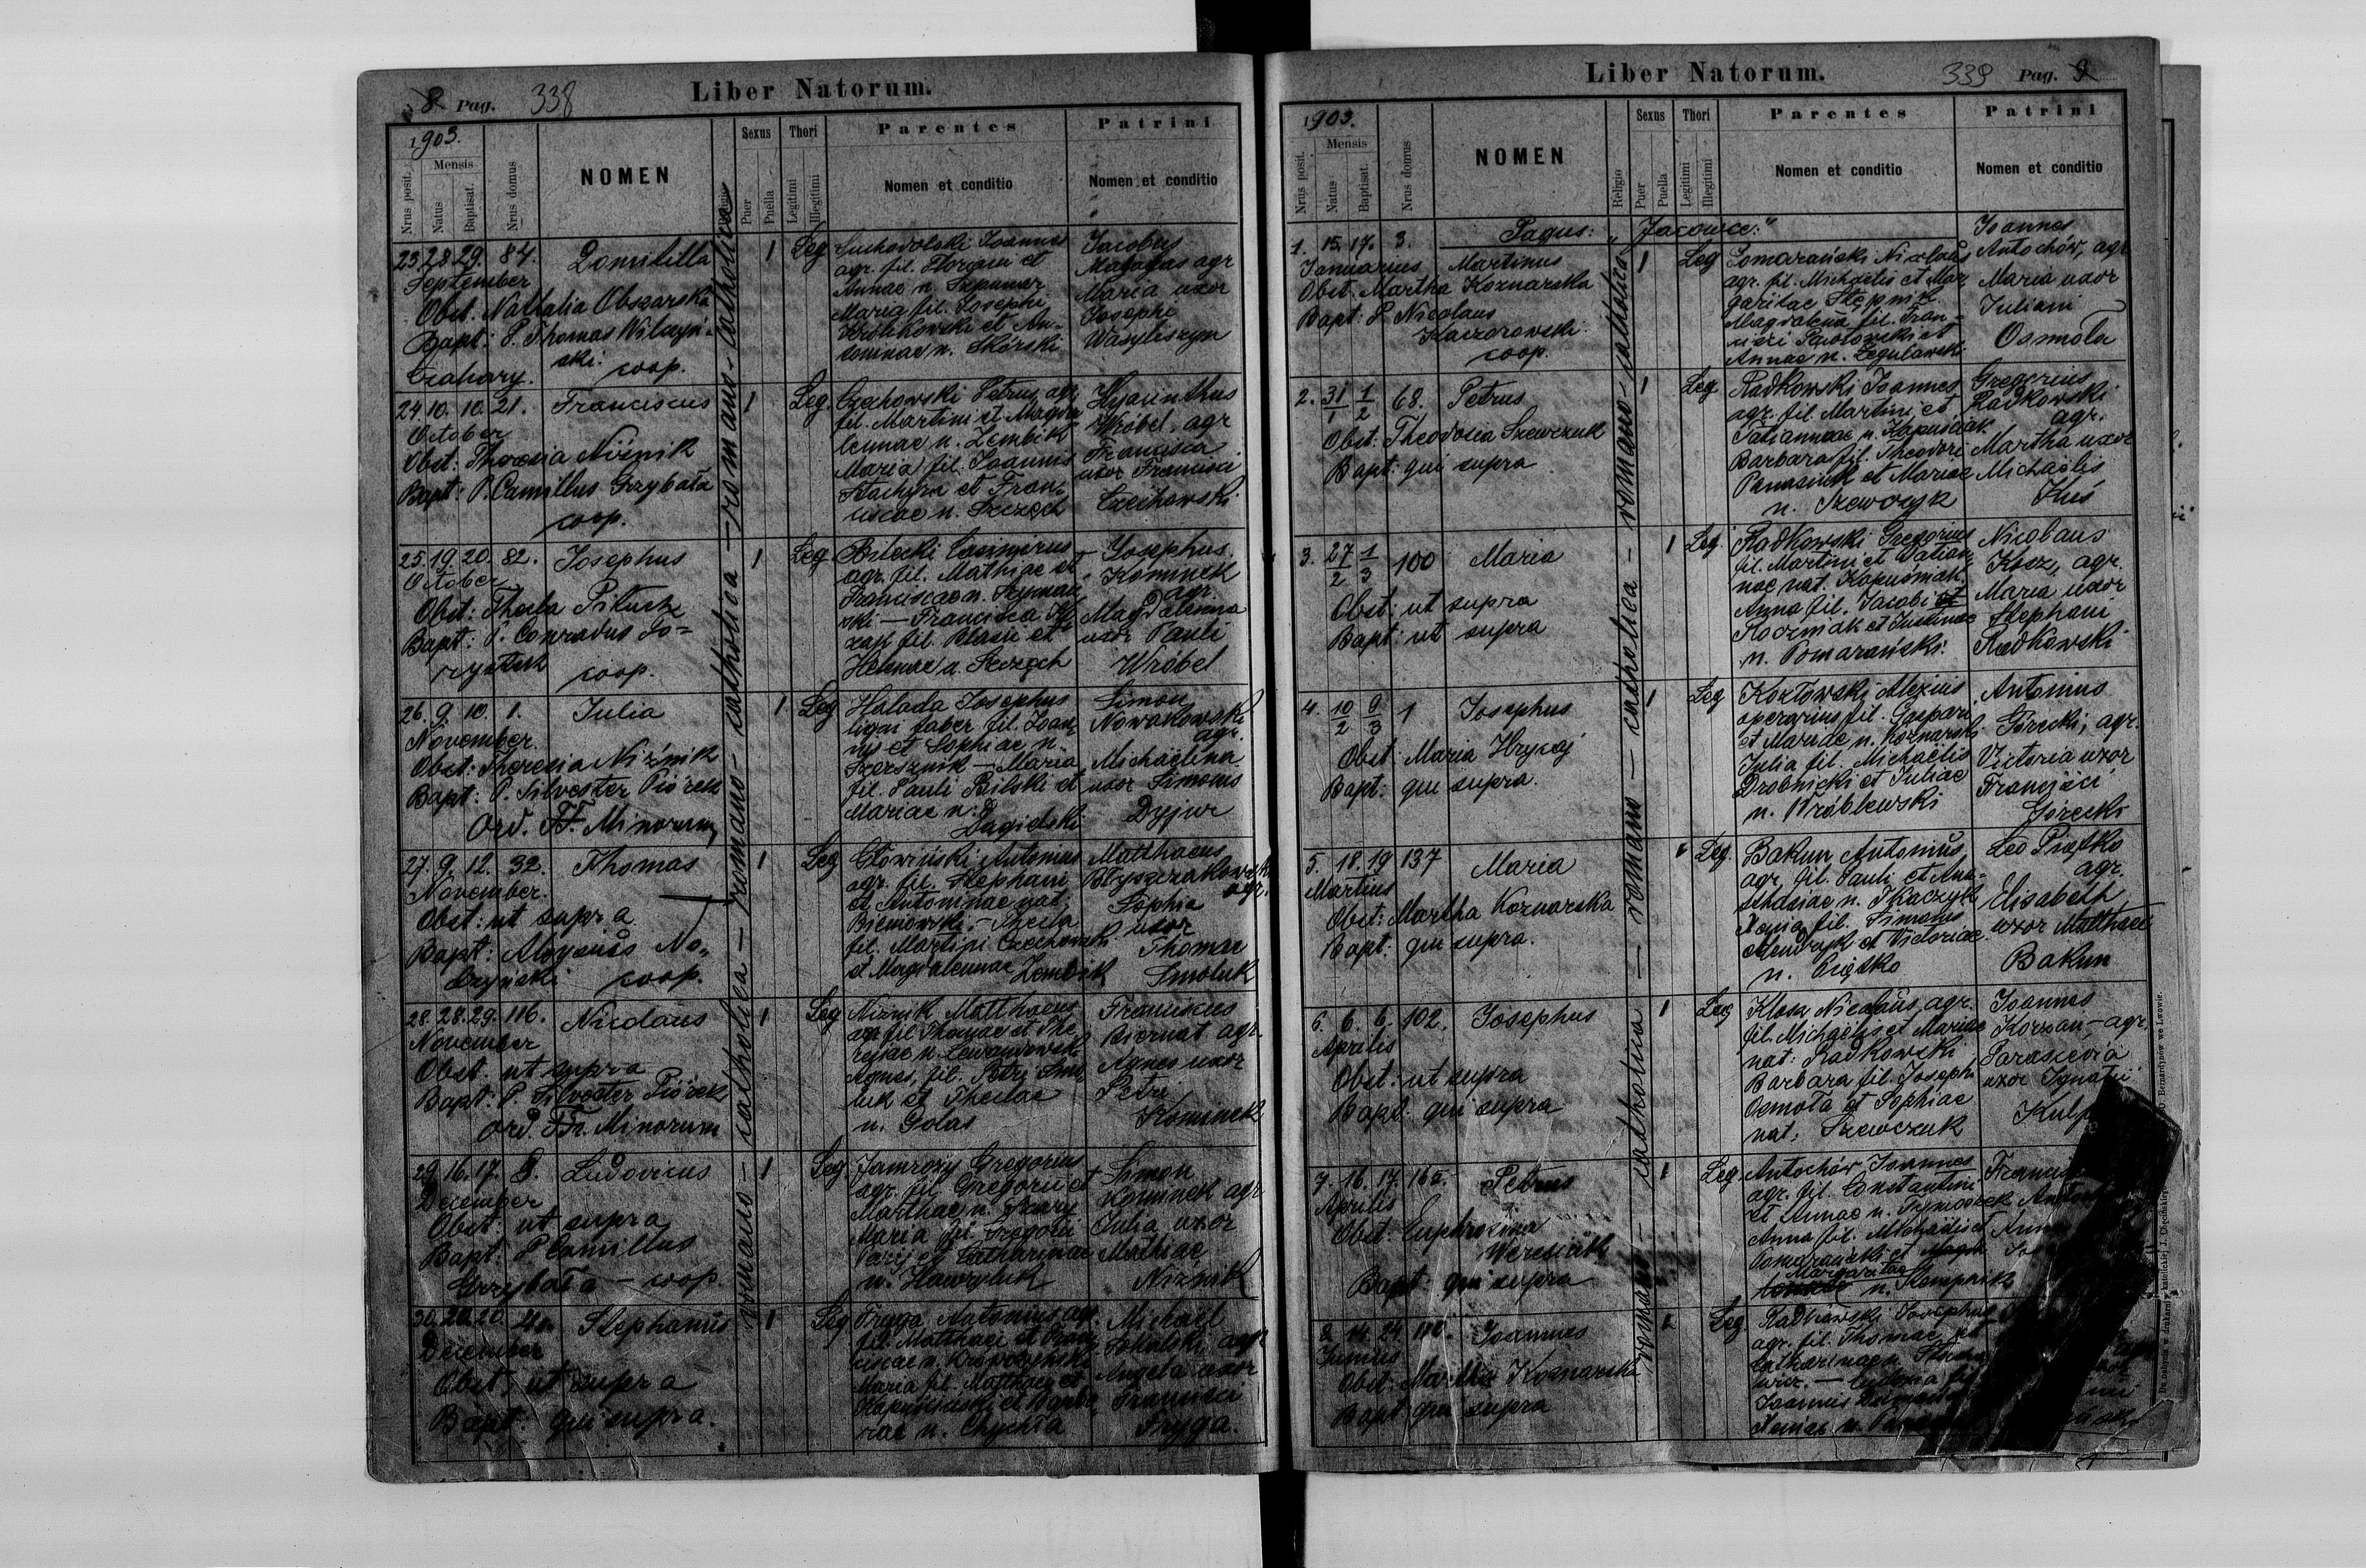 8 Pag. 338
Liber Natorum.
1903.
Nrus posit.
Mensis
Natus
Baptisat.
Nrus domus
NOMEN
Religio
Sexus
Puer
Puella
Thori
Legitimi
Illegitimi
Parentes
Nomen et conditio
Patrini
Nomen et conditio
romano-catholica — romano-catholica — romano-catholica
23. 28. 29. 84. Domitilla 1 Leg
September
Obst. Nathalia Obszarska
Bapt: P. Thomas Wilczyń-
ski coop.
Czahary.
Suchodolski Joannes
agr. fil. Floriani et
Annae n. Szpunar
Maria fil. Josephi
Królikowski et An-
tominae n. Skórski
Jacobus
Matagas agr
Maria uxor
Josephi
Wasyliszyn
24. 10. 10. 21. Franciscus 1 Leg.
October
Obst: Theresia Niżnik
Bapt: P. Camillus Grzybała
coop.
Czahowski Petrus agr
fil. Martini et Magda-
lennae n. Zembik
Maria fil. Joannis
Stachyra et Fran-
ciscae n. Szczęch
Hyacinthus
Wróbel, agr
Francisca
uxor Francisci
Czechowski
25. 19. 20. 82. Josephus 1 Leg
October
Obst: Thecla Piłuch
Bapt: P. Conradus
coop.
Bilecki Casimirus
agr. fil. Mathiae et
Franciscae n. Szymań-
ski — Francisca
fil. Blasii et
Helenae n. Szczęch
Josephus
Kominek
agr.
Magdalenna
uxor Pauli
Wróbel
26. 9. 10. 1. Julia 1 Leg
November.
Obst: Theresia Niżnik
Bapt: P. Silvester Piórek
Ord. FF. Minorum
Halada Josephus
ligni faber fil. Joan-
nis et Sophiae n.
Szersznik — Maria
fil. Pauli Bilski et
Mariae n.
Simon
Nowakowski
agr.
Michaëlina
uxor Simonis
27. 9. 12. 32. Thomas 1 Leg
November.
Obst: ut supra
Bapt: Aloysius
coop.
Głowiński Antonius
agr. fil. Stephani
et Antoninae nat.
Thecla
fil. Martini Czechowski
et Magdalennae Zembik
Matthaeus
Błyszczakowski
agr.
Sophia
uxor
Thomae
Smoluk
28. 28. 29. 116. Nicolaus 1 Leg
November
Obst. ut supra
Bapt: P. Silvester Piórek
Ord. Fr. Minorum
Niżnik Matthaeus
agr. fil Thomae et The-
resiae n. Lewandowski
Agnes, fil. Petri Smo-
luk et Theclae
n. Golas
Franciscus
Biernat agr.
Agnes uxor
Petri
Kominek
29. 16. 17. 8. Ludovicus 1 Leg
December
Obst: ut supra
Bapt: P. Camillus
Grzybała — coop
Jamroży Gregorius
agr. fil. Gregorii et
Marthae n. Szary
Maria fil. Gregorii
et Catharinae
n. Hawryluk
Simon
Kominek agr
Julia uxor
Mathiae
Niżnik
30. 20. 20. Stephanus 1 Leg
December
Obst, ut supra
Bapt: qui supra.
Fryga Antonius agr.
fil. Matthaei et Fran-
ciscae n.
Maria fil. Matthaei et
et Barba-
rae n. Chychła
Michaël
Sokalski, agr
Angela uxor
Francisci
Fryga.
Liber Natorum.
339 Pag. 9
1903.
Nrus posit.
Mensis
Natus
Baptisat.
Nrus domus
NOMEN
Religio
Sexus
Puer
Puella
Thori
Legitimi
Illegitimi
Parentes
Nomen et conditio
Patrini
Nomen et conditio
romano-catholica — romano-catholica — romano-catholica
Pagus: „Jacowce."
1. 15. 17. 3. Martinus 1 Leg
Januarius
Obst. Martha Koznarska
Bapt: P. Nicolaus
Kaczorowski
coop.
Pomarański Nicolaus
agr. fil. Michaëlis et Mar-
garitae Stępnik
Magdalena fil. Fran-
cisci Pawłowski et
Annae n.
Joannes
Antochów, agr
Maria uxor
Juliani
Osmola
2. 31/1 1/2 68. Petrus 1 Leg
Obst: Theodosia Szewczuk
Bapt: qui supra
Radkowski Joannes
agr. fil. Martini et
Tatiannae n. Kapuściak
Barbara fil. Theodori
Panasiuk et Mariae
n. Szewczyk
Gregorius
Radkowski
agr.
Martha uxor
Michaëlis
Kuś
3. 27/2 1/3 100 Maria 1 Leg.
Obst: ut supra
Bapt: ut supra
Radkowski Gregorius
fil. Martini et Tatian-
nae nat. Kapuśniak.
Anna fil. Jacobi et
et Justinae
n. Pomarański.
Nicolaus
Kosz, agr.
Maria uxor
Stephani
Radkowski
4. 10/2 9/3 1 Josephus 1 Leg
Obst: Maria Hrycaj
Bapt: qui supra.
Kozłowski Alexius
operarius, fil. Gaspari
et Mariae n. Koznarski
Julia fil. Michaëlis
Drobnicki et Juliae
n. Wróblewski
Antonius
Górecki, agr.
Victoria uxor
Francisci
Górecki
5. 18. 19 137 Maria 1 Leg.
Martius
Obst: Martha Koznarska
Bapt: qui supra.
Bakun Antonius
agr. fil. Pauli et Ana-
sthasiae n. Tkaczyk
Xenia fil. Simonis
et Victoriae
n. Piątko
Leo Piątko
agr.
Elisabeth
uxor Matthaei
Bakun
6. 6. 6. 102. Josephus 1 Leg
Aprilis
Obst: ut supra
Bapt: qui supra
Kłosz Nicolaus, agr.
fil. Michaëlis et Mariae
nat: Radkowski
Barbara fil. Josephi
Osmola et Sophiae
nat: Szewczuk
Joannes
Korzan — agr,
Parascevia
uxor Ignatii
7. 16. 17. Petrus 1 Leg
Aprilis
Obst: Euphrosina
Bapt: qui supra
Antochów Joannes
agr. fil. Constantini
et Annae n.
Anna fil. Michaëlis et
Pomarański et
Margaritae
n. Stempnik
8. 14. 24. 110. Joannes 1 Leg
Junius
Obst: Martha Koznarska
Bapt: qui supra
Radkowski Josephus
agr. fil. Thomae et
Catharinae n.
Eudoxia fil
Joannis
Xeniae n.